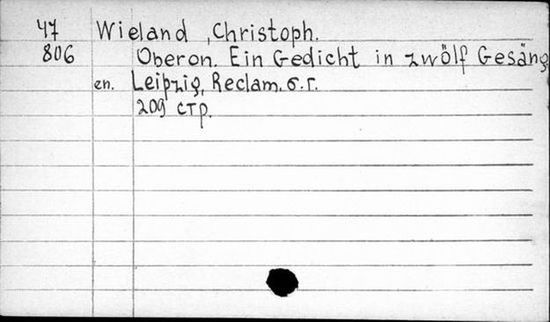 47 Wieland, Christoph.
806 Oberon. Ein Gedicht in zwölf Gesäng
en. Leipzig, Reclam. б.г.
209 стр.